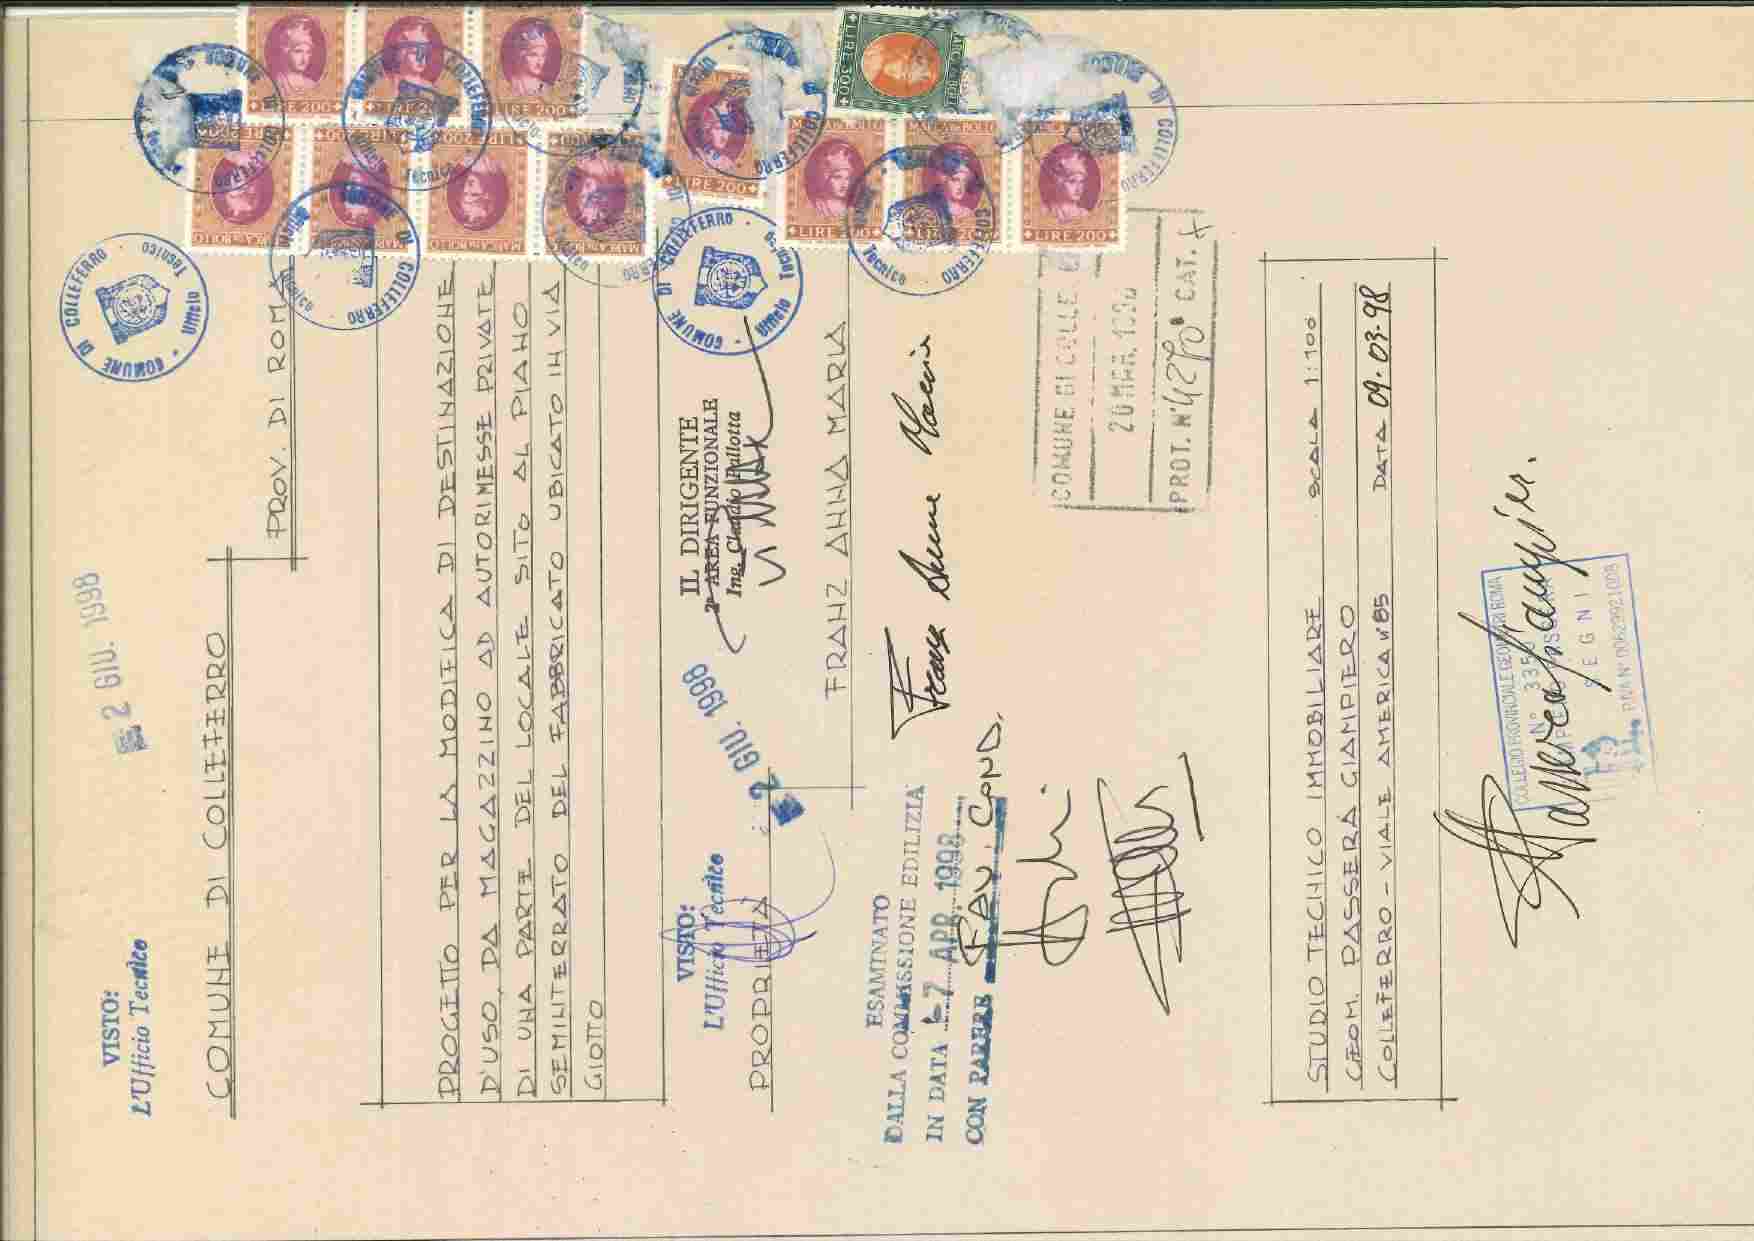 VISTO:
L'Ufficio Tecnico
2 GIU. 1998
COMUNE DI COLLEFERRO
Ufficio Tecnico
COMUNE DI COLLEFERRO
PROV. DI ROMA
PROGETTO PER LA MODIFICA DI DESTINAZIONE
D'USO, DA MAGAZZINO AD AUTORIMESSE PRIVATE
DI UNA PARTE DEL LOCALE SITO AL PIANO
SEMINTERRATO DEL FABBRICATO UBICATO IN VIA
GIOTTO
VISTO:
L'Ufficio Tecnico
2 GIU. 1998
IL DIRIGENTE
2ª AREA FUNZIONALE
Ing. Claudio Pallotta
COMUNE DI COLLEFERRO
Ufficio Tecnico
PROPRIETA
FRANZ ANNA MARIA
Franz Anna Maria
ESAMINATO
DALLA COMMISSIONE EDILIZIA
IN DATA -7 APR. 1998
CON PARERE FAV. COND.
COMUNE DI COLLE
20 MAR. 199
PROT. N° 4270 CAT.
STUDIO TECNICO IMMOBILIARE SCALA 1:100
GEOM. PASSERA GIAMPIERO
COLLEFERRO - VIALE AMERICA N° 85 DATA 09.03.98
COLLEGIO PROVINCIALE GEOMETRI ROMA
N° 3350
SEGNI
P.IVA N° 00629921008
MARCA DA BOLLO
LIRE 200
LIRE 300